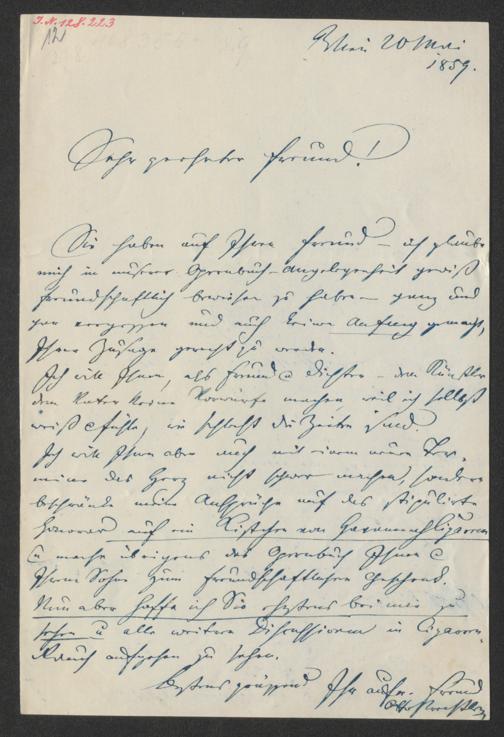 I.N. 128.223
12
Wien 20 Mai
1859.
Sehr geehrter Freund!
Sie haben auf Ihren Freund – ich glaube
mich in unserer Opernbuch-Angelegenheit gewiß
freundschaftlich bewiesen zu haben – ganz und
gar vergessen und auch keinen Anfang gemacht,
Ihrer Zusage gerecht zu werden.
Ich will Ihnen, als Freund u Dichter – dem Künstler
dem Vater keine Vorwürfe machen weil ich selbst
weiß u fühle, wie schlecht die Zeiten sind.
Ich will Ihnen aber auch mit einem neuen Ter-
mine das Herz nicht schwer machen, sondern
beschränke meine Ansprüche auf das stipulirte
Honorar auf ein Kistchen von Havannah Cigarren
u mache übrigens das Opernbuch Ihnen u
Ihrem Sohne zum freundschaftlichen Geschenk.
Nun aber hoffe ich Sie ehestens bei mir zu
sehen u alle weitere Diskussionen in Cigarren-
Rauch aufgehen zu sehen.
Bestens grüssend Ihr aufr. Freund
Otto Prechtler